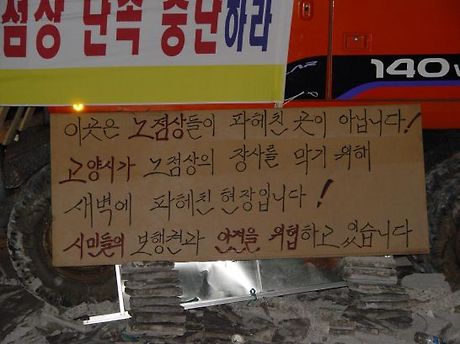 점상 단속 중단하라
140W
이곳은 노점상들이 파헤친 곳이 아닙니다!
고양시가 노점상의 장사를 막기 위해
새벽에 파헤친 현장입니다!
시민들의 보행권과 안전을 위협하고 있습니다